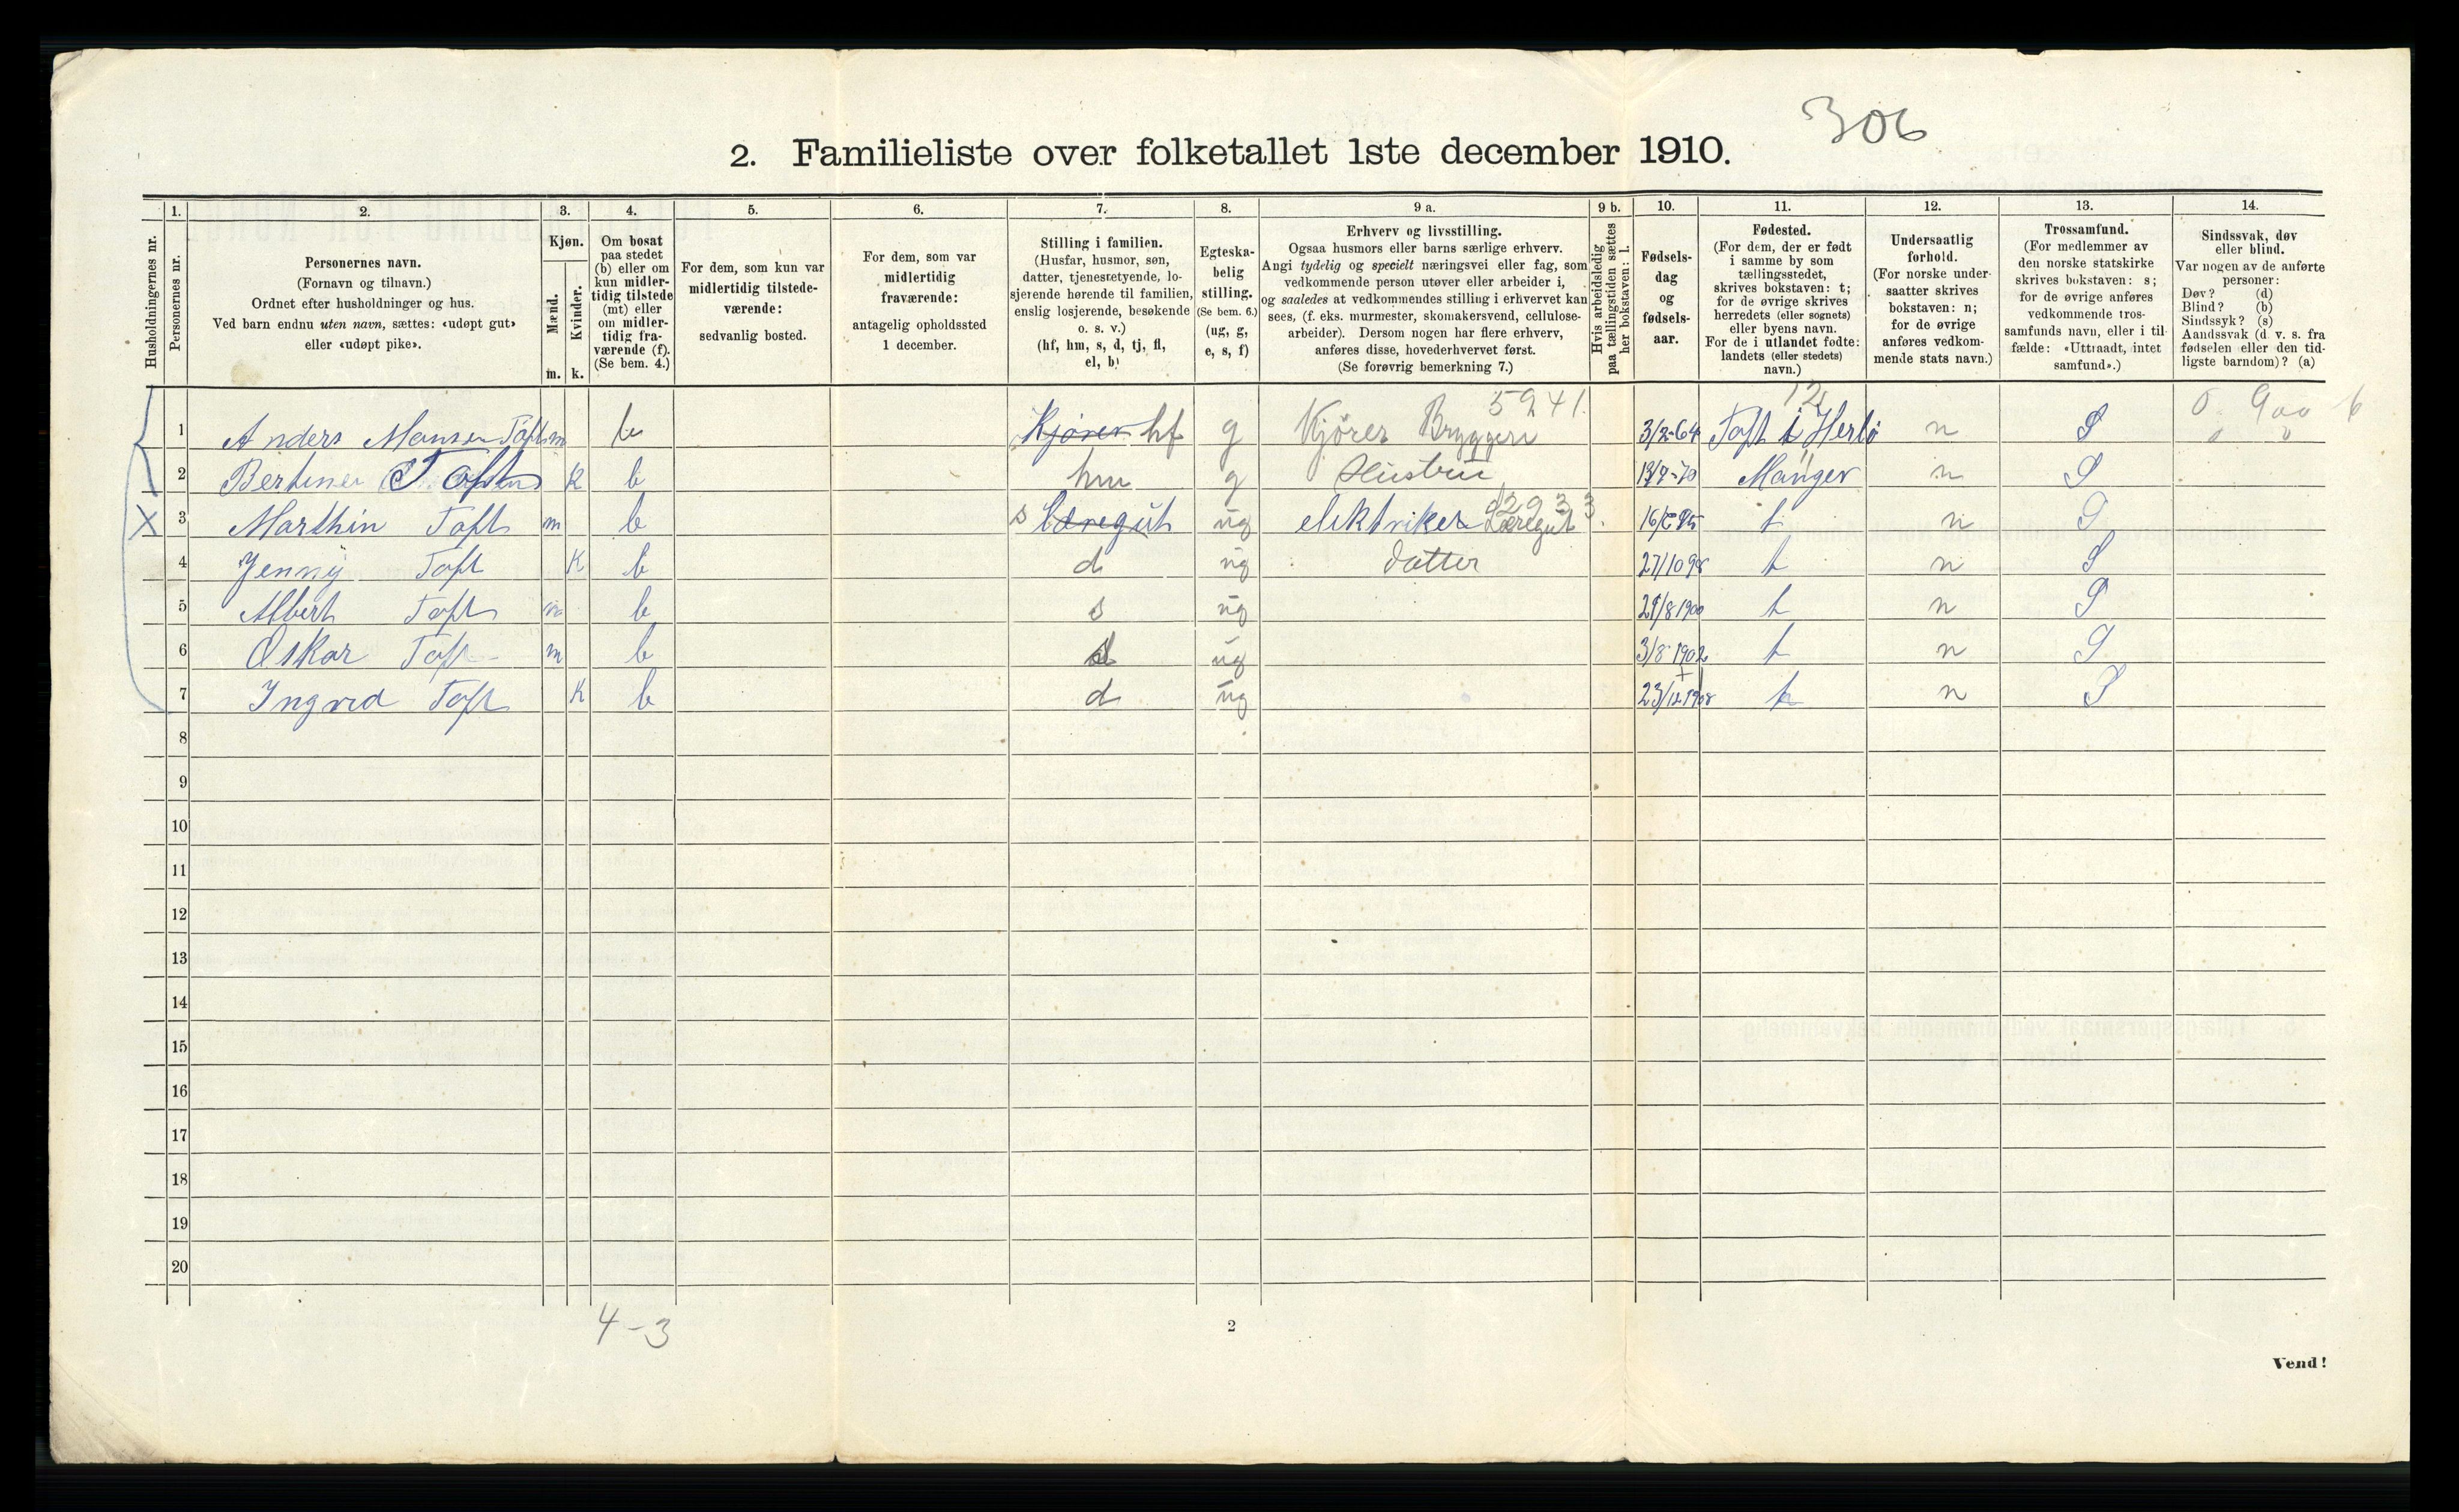 306
2. Familieliste over folketallet 1ste december 1910.
Husholdningernes nr.
1.
Personernes nr.
2.
Personernes navn.
(Fornavn og tilnavn.)
Ordnet efter husholdninger og hus.
Ved barn endnu uten navn, sættes: «udøpt gut»
eller «udøpt pike».
3.
Kjøn.
Mænd.
Kvinder.
m. k.
4.
Om bosat
paa stedet
(b) eller om
kun midler-
tidig tilstede
(mt) eller
om midler-
tidig fra-
værende (f).
(Se bem. 4.)
5.
For dem, som kun var
midlertidig tilstede-
værende:
sedvanlig bosted.
6.
For dem, som var
midlertidig
fraværende:
antagelig opholdssted
1 december.
7.
Stilling i familien.
(Husfar, husmor, søn,
datter, tjenestetyende, lo-
sjerende hørende til familien,
enslig losjerende, besøkende
o. s. v.)
(hf, hm, s, d, tj, fl,
el, b)
8.
Egteska-
belig
stilling.
(Se bem. 6.)
(ug, g,
e, s, f)
9 a.
Erhverv og livsstilling.
Ogsaa husmors eller barns særlige erhverv.
Angi tydelig og specielt næringsvei eller fag, som
vedkommende person utøver eller arbeider i,
og saaledes at vedkommendes stilling i erhvervet kan
sees, (f. eks. murmester, skomakersvend, cellulose-
arbeider). Dersom nogen har flere erhverv,
anføres disse, hovederhvervet først.
(Se forøvrig bemerkning 7.)
9 b.
Hvis arbeidsledig
paa tællingstiden sættes
her bokstaven: l.
10.
Fødsels-
dag
og
fødsels-
aar.
11.
Fødested.
(For dem, der er født
i samme by som
tællingsstedet,
skrives bokstaven: t;
for de øvrige skrives
herredets (eller sognets)
eller byens navn.
For de i utlandet fødte:
landets (eller stedets)
navn.)
12.
Undersaatlig
forhold.
(For norske under-
saatter skrives
bokstaven: n;
for de øvrige
anføres vedkom-
mende stats navn.)
13.
Trossamfund.
(For medlemmer av
den norske statskirke
skrives bokstaven: s;
for de øvrige anføres
vedkommende tros-
samfunds navn, eller i til-
fælde: «Uttraadt, intet
samfund».)
14.
Sindssvak, døv
eller blind.
Var nogen av de anførte
personer:
Døv? (d)
Blind? (b)
Sindssyk? (s)
Aandssvak (d. v. s. fra
fødselen eller den tid-
ligste barndom)? (a)
5941. 12
1 Anders Monsen Toft m b Kjører hf g Kjører Bryggeri 3/2-64 Toft i Herlø n S
2 Bertine Toft K b hm g Hustru 13/7-70 Manger n S
2933
X 3 Marthin Toft m b s Læregut ug elektriker Læregut t n S
4 Jenny Toft K b d ug datter 27/10 98 t n S
5 Albert Toft m b s ug 29/8 1900 t n S
6 Oskar Toft m b s ug 3/8 1902 t n S
7 Ingvid Toft K b d ug 23/12 1908 t n S
8
9
10
11
12
13
14
15
16
17
18
19
20
4-3
2
Vend!